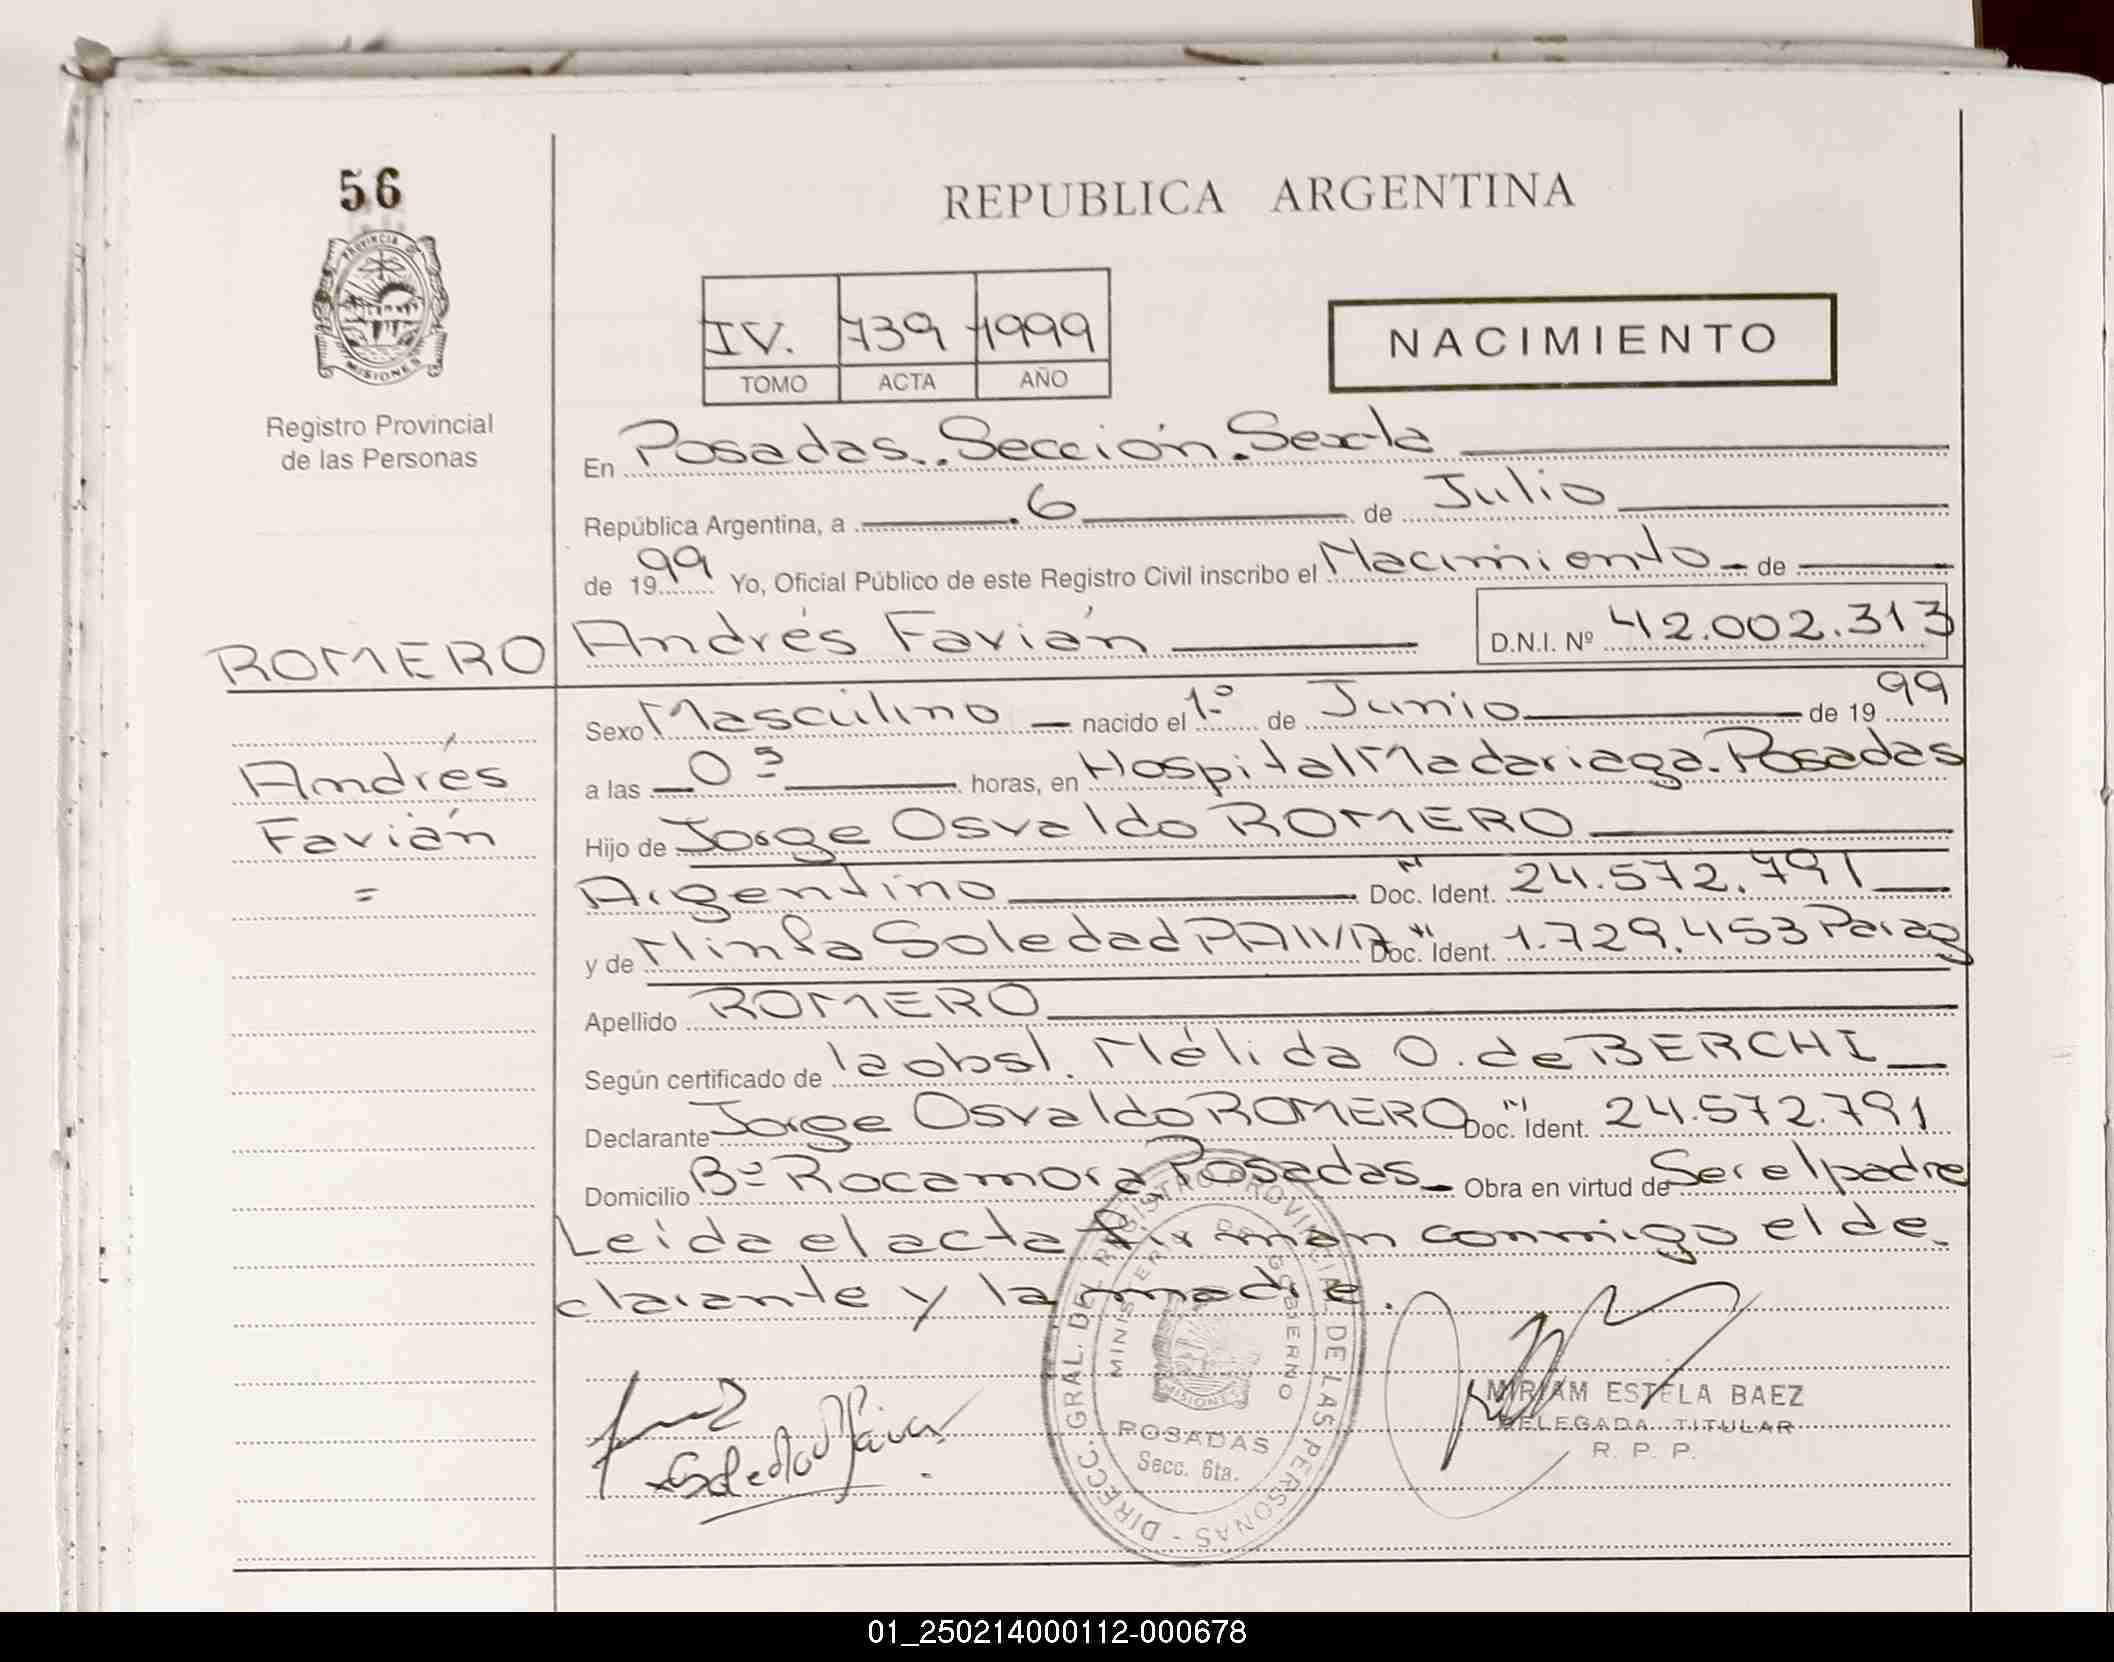 56
REPUBLICA ARGENTINA
PROVINCIA D
MISIONES
IV. 739 1999
TOMO ACTA AÑO
NACIMIENTO
Registro Provincial
de las Personas
En Posadas. Sección. Sexta
República Argentina, a 6 de Julio
de 1999 Yo, Oficial Público de este Registro Civil inscribo el Nacimiento de
ROMERO Andrés Favián D.N.I. Nº 42.002.313
Sexo Masculino nacido el 1º de Junio de 1999
Andrés a las 0 horas, en Hospital Madariaga. Posadas
Favián Hijo de Jorge Osvaldo ROMERO
= Argentino Doc. Ident. 24.572.791
y de Soledad Doc. Ident. 1.729.453 Parag
Apellido ROMERO
Según certificado de la obst. Nélida O. de BERCHI
Declarante Jorge Osvaldo ROMERO Doc. Ident. 24.572.791
Domicilio Bº Rocamora Posadas Obra en virtud de Ser el padre
Leída el acta firman conmigo el de
clarante y la madre.
DIRECC. GRAL. DEL REGISTRO PROVINCIAL DE LAS PERSONAS -
MINISTERIO DE GOBIERNO
MISIONES
POSADAS
Secc. 6ta.
Soledad Páiva
MIRIAM ESTELA BAEZ
DELEGADA TITULAR
R. P. P.
01_250214000112-000678